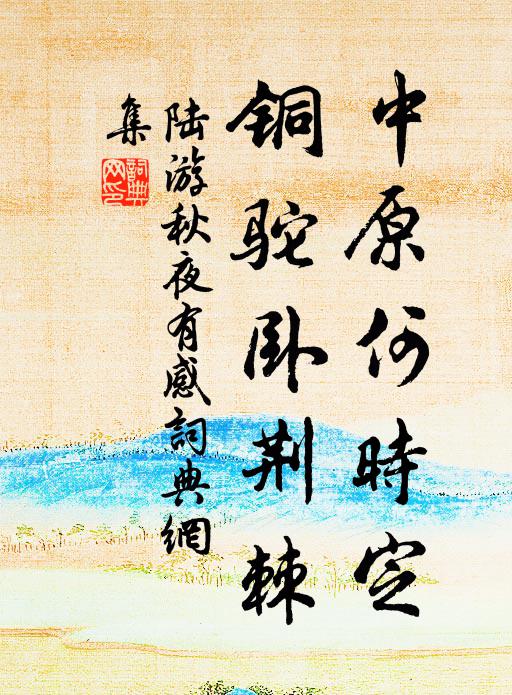 中原何時定
銅駝卧荆棘
陆游秋夜有感詞典網
集
詞典
网印